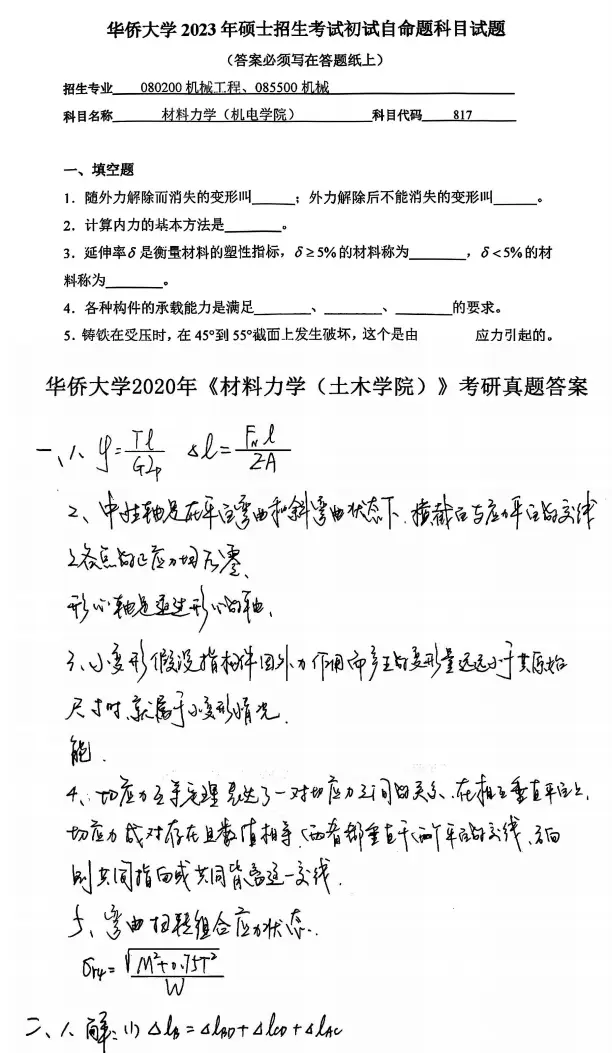 华侨大学 2023 年硕士招生考试初试自命题科目试题
（答案必须写在答题纸上）
招生专业 080200 机械工程、085500 机械
科目名称 材料力学（机电学院） 科目代码 817
一、填空题
1．随外力解除而消失的变形叫______；外力解除后不能消失的变形叫______。
2．计算内力的基本方法是________。
3．延伸率δ是衡量材料的塑性指标，δ≥5%的材料称为________，δ<5%的材
料称为________。
4．各种构件的承载能力是满足________、________、________的要求。
5．铸铁在受压时，在 45°到 55°截面上发生破坏，这个是由 应力引起的。
华侨大学2020年《材料力学（土木学院）》考研真题答案
一、1、φ=Tl/GIp Δl=F_N l/EA
2、中性轴是在平面弯曲和斜弯曲状态下，横截面与应力平面的交线
上各点的正应力均为零、
形心轴是通过形心的轴，
3、小变形假设指构件因外力作用而产生的变形量远远小于其原始
尺寸时，就属于小变形情况．
能．
4、切应力互等定理表达了一对切应力之间的关系．在相互垂直平面上，
切应力成对存在且数值相等，两者都垂直于两个平面的交线，方向
则共同指向或共同背离这一交线．
5、弯曲扭转组合应力状态．
σr4=√(M²+0.75T²)/W
二、1、解：(1) Δl_B=Δl_BD+Δl_CD+Δl_AC